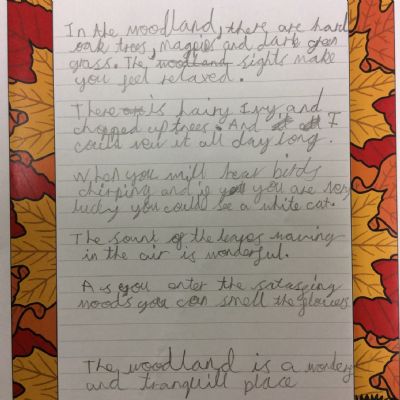 In the woodland, there are hard
oak trees, magpies and dark green
grass. The woodland sights make
you feel relaxed.
There is hairy Ivy and
chopped up trees. And I
could view it all day long.
When you will hear birds
chirping and if you are very
lucky you could see a white cat.
The sound of the leaves
in the air is wonderful.
As you enter the
woods you can smell the flowers
The woodland is a
and tranquill place